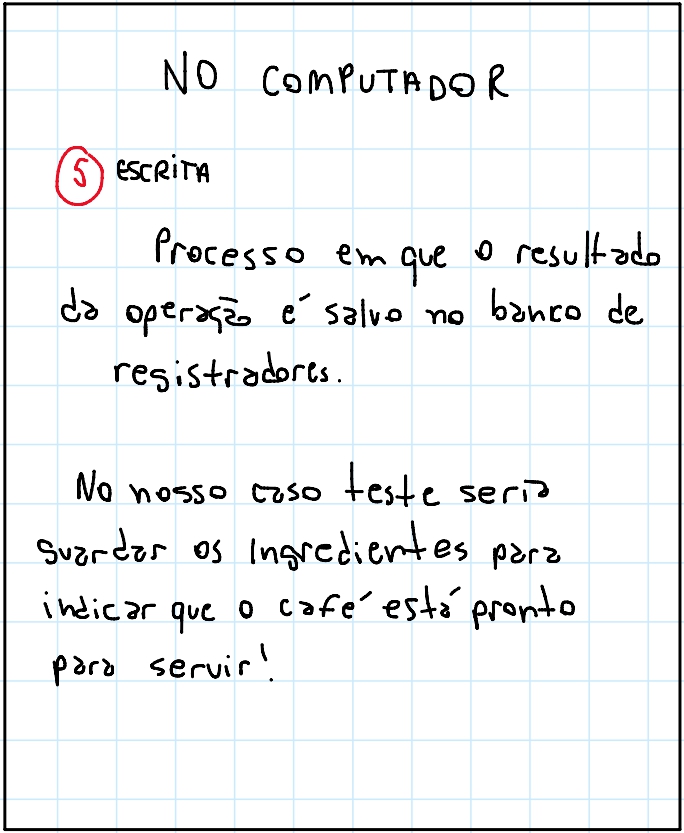 NO COMPUTADOR
5 ESCRITA
Processo em que o resultado
da operação é salvo no banco de
registradores.
No nosso caso teste seria
guardar os ingredientes para
indicar que o café está pronto
para servir!